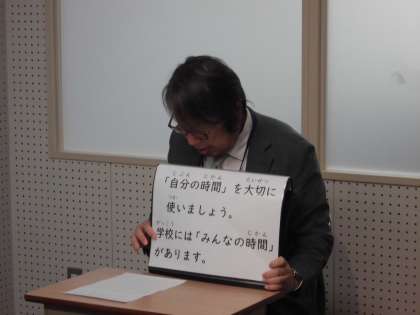 「自分の時間」を大切に
使いましょう。
学校には「みんなの時間」
があります。